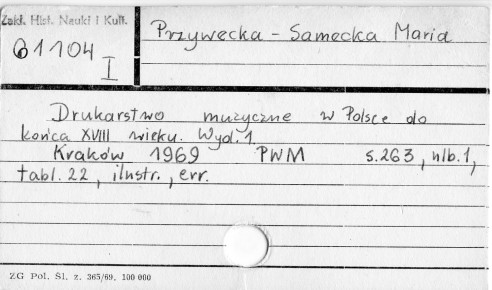 Zakł. Hist. Nauki i Kult.
61104
I
Przywecka-Samecka Maria
Drukarstwo muzyczne w Polsce do
końca XVIII wieku. Wyd. 1
Kraków 1969 PWM s. 263, nlb. 1,
tabl. 22, ilustr., err.
ZG Pol. Śl. z. 365/69. 100 000